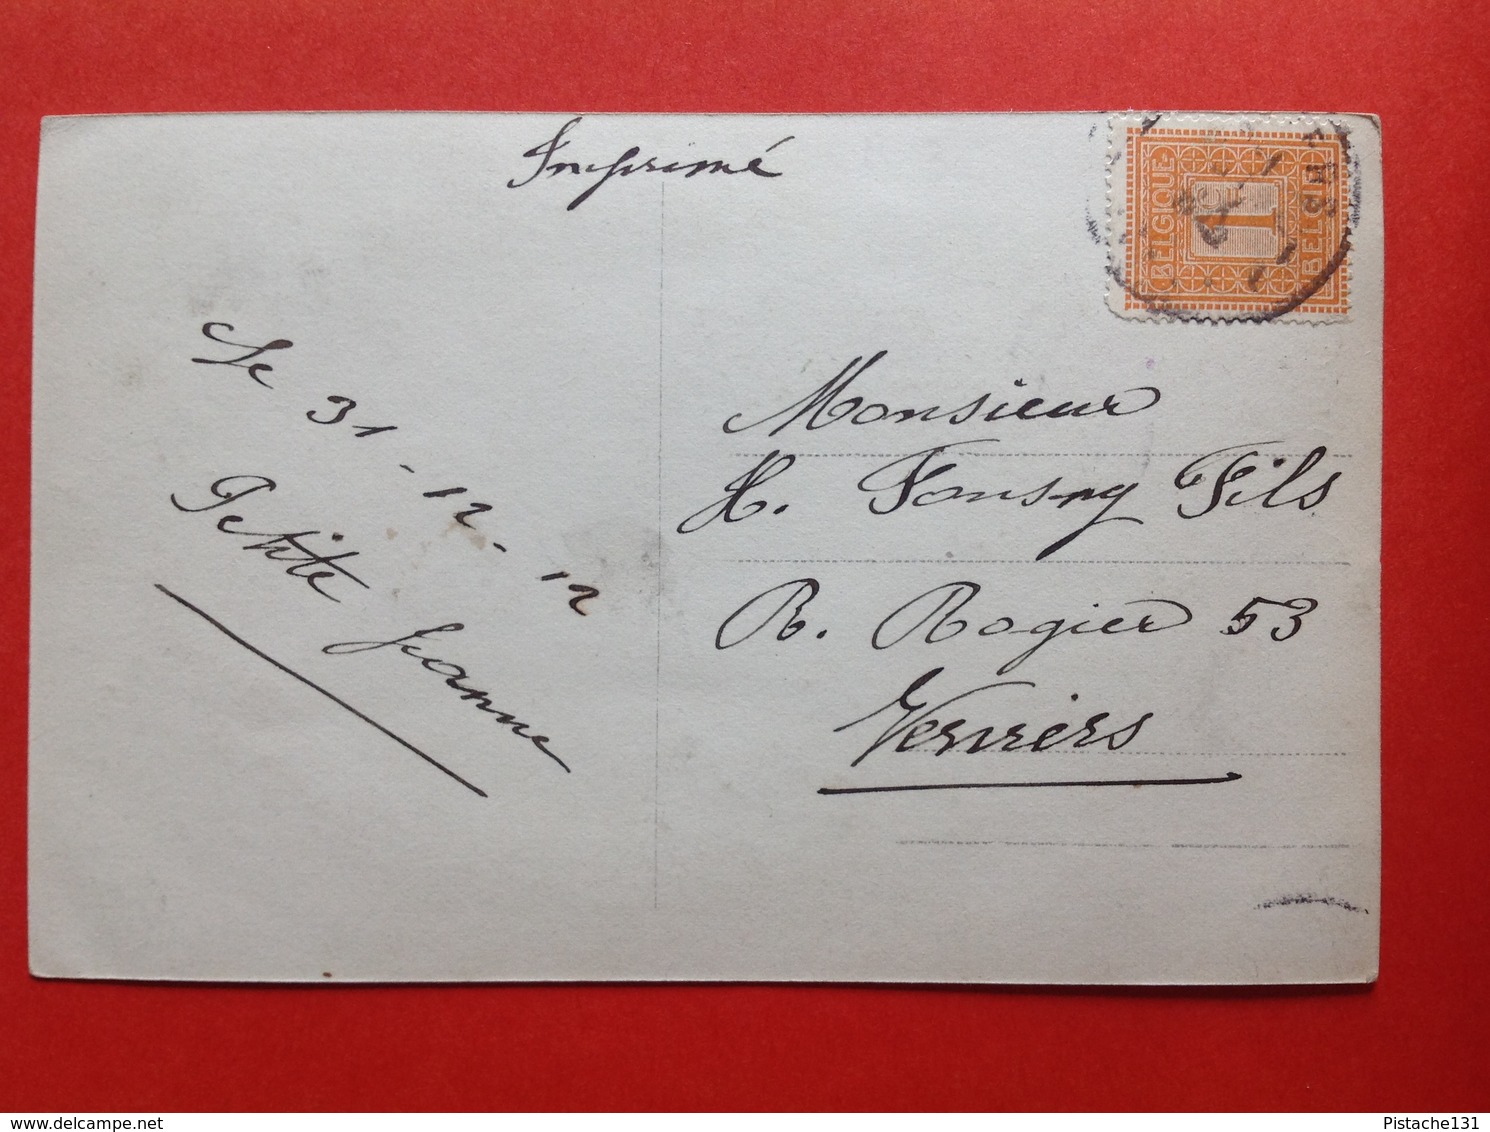 Imprimé
BELGIQUE
1
BELGIË
Le 31-12-12
Petite Jeanne
Monsieur
H. Fonsny Fils
R. Rogier 53
Verviers
www.delcampe.net
Pistache131